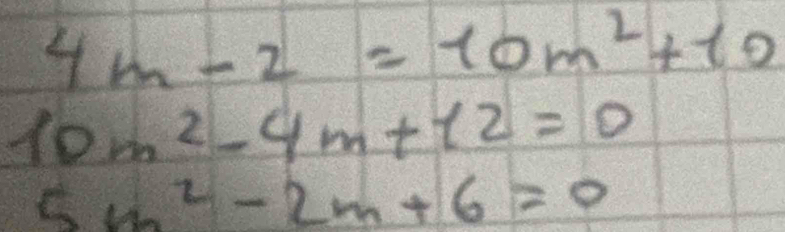 4m - 2 = 10m² + 10
10m² - 4m + 12 = 0
5m² - 2m + 6 = 0